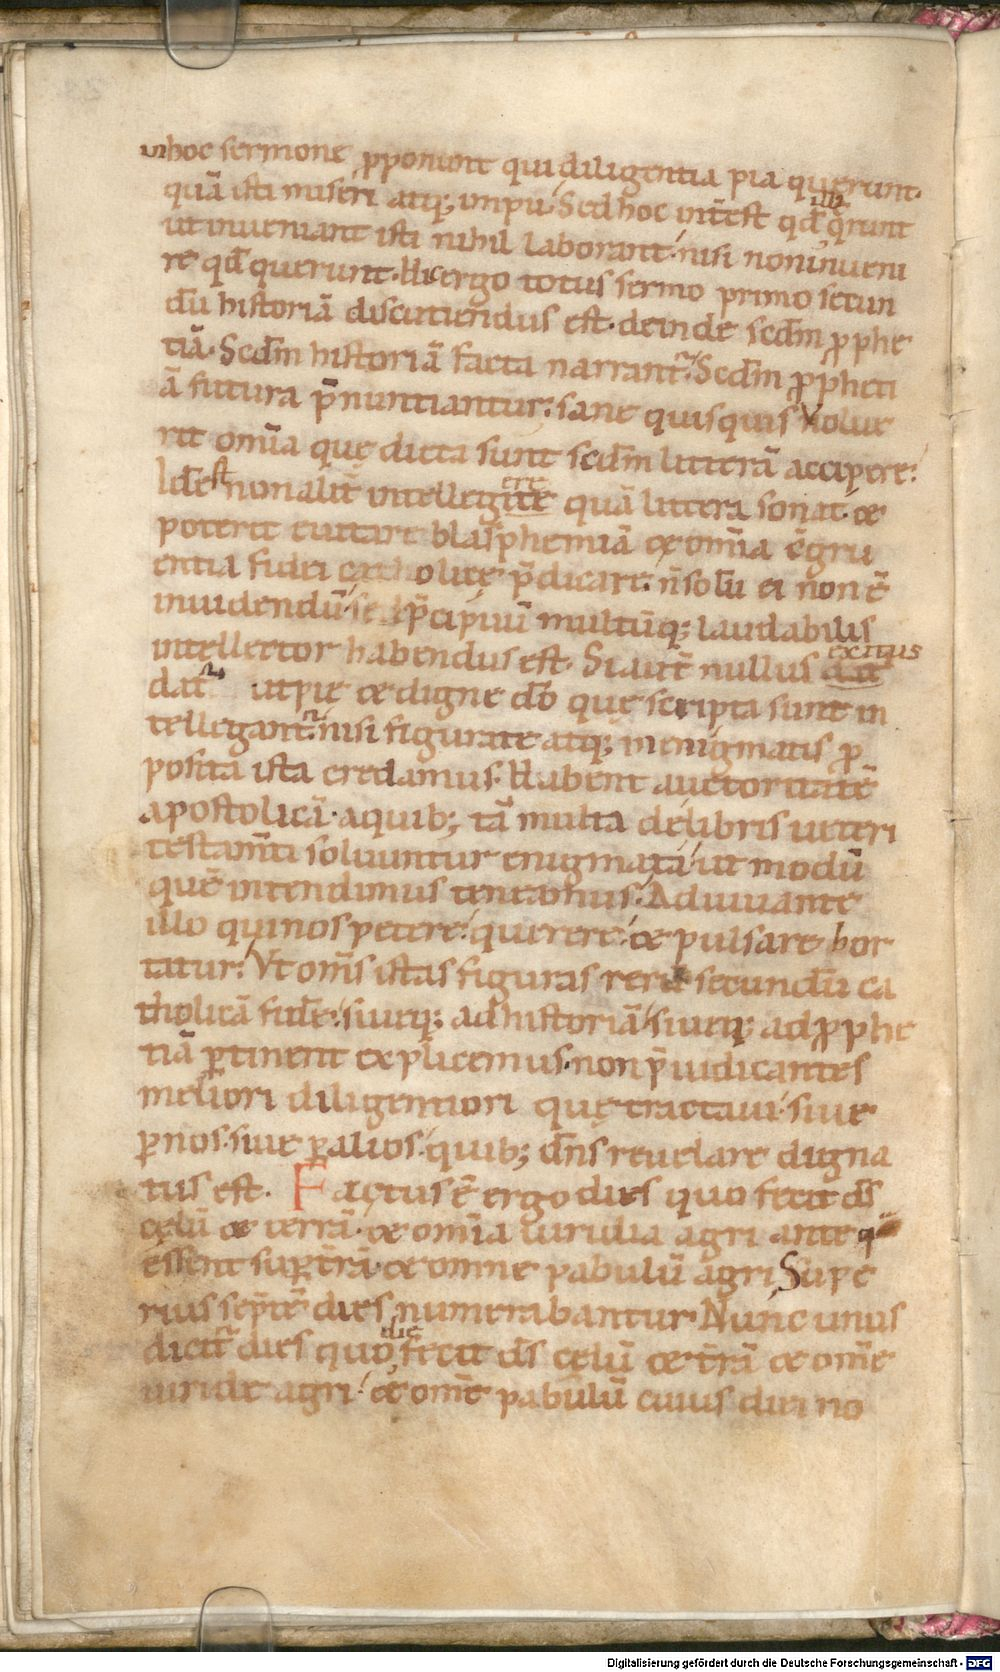 in hoc sermone ꝓponunt qui diligentia pia querunt.
quā isti miseri atq; impii. Sed hoc int̄est qđ illi q̄runt
ut inueniant isti nihil laborant. nisi non inueni
re qđ querunt. Hic ergo totus sermo primo secun
dū historiā discutiendus est. deinde scd̄m ꝓphe
tiā. Scd̄m historiā facta narrant̄. Scd̄m ꝓpheti
ā futura p̄nuntiantur. sane quisquis uolue
rit om̄ia quę dicta sunt scd̄m litterā accipere.
Id est non alit̄ intellegite ere quā littera sonat. &
poterit euitare blasphemiā & om̄ia c̄gru
entia fidei catholicę p̄dicare. n̄ solū ei non ē
inuidendū. sed p̄cipuū multūq; laudabilis
intellector habendus est. Si aut̄ nullus exitus
dat̄ ut pie & digne dō quę scripta sunt in
tellegant̄. nisi figurate atq; in enigmatis ꝓ
posita ista credamus. Habent auctoritatē
apostolicā. a quib; tā multa de libris ueteri
testam̄ti soluuntur enigmata. ut modū
quē intendimus teneamus. Adiuuante
illo qui nos petere. querere. & pulsare hor
tatur. Vt om̄s istas figuras rerū secundū ca
tholicā fidē. siueq; ad historiā. siueq; ad ꝓphe
tiā ꝑtinent explicemus. non p̄iudicantes
meliori diligentiori quę tractaui. siue
ꝑ nos. siue ꝑ alios. quib; dn̄s reuelare digna
tus est. Factus ē ergo dies quo fecit dš
cęlū & terrā. & om̄ia uiridia agri ante q̄
essent suꝑ t̄rā. & omne pabulū agri. Supe
rius sept̄ē dies numerabantur. Nunc unus
dicit̄ dies quo die fecit dš cęlū & t̄rā & om̄e
uiride agri. & om̄e pabulū cuius diei no
Digitalisierung gefördert durch die Deutsche Forschungsgemeinschaft - DFG